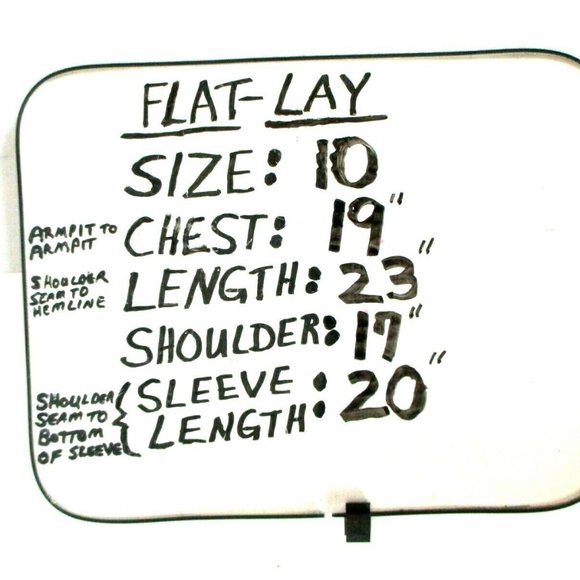 FLAT-LAY
SIZE: 10
ARMPIT TO
ARMPIT
CHEST: 19"
SHOULDER
SEAM TO
HEMLINE
LENGTH: 23"
SHOULDER: 17"
SHOULDER
SEAM TO
BOTTOM
OF SLEEVE
SLEEVE : 20"
LENGTH: